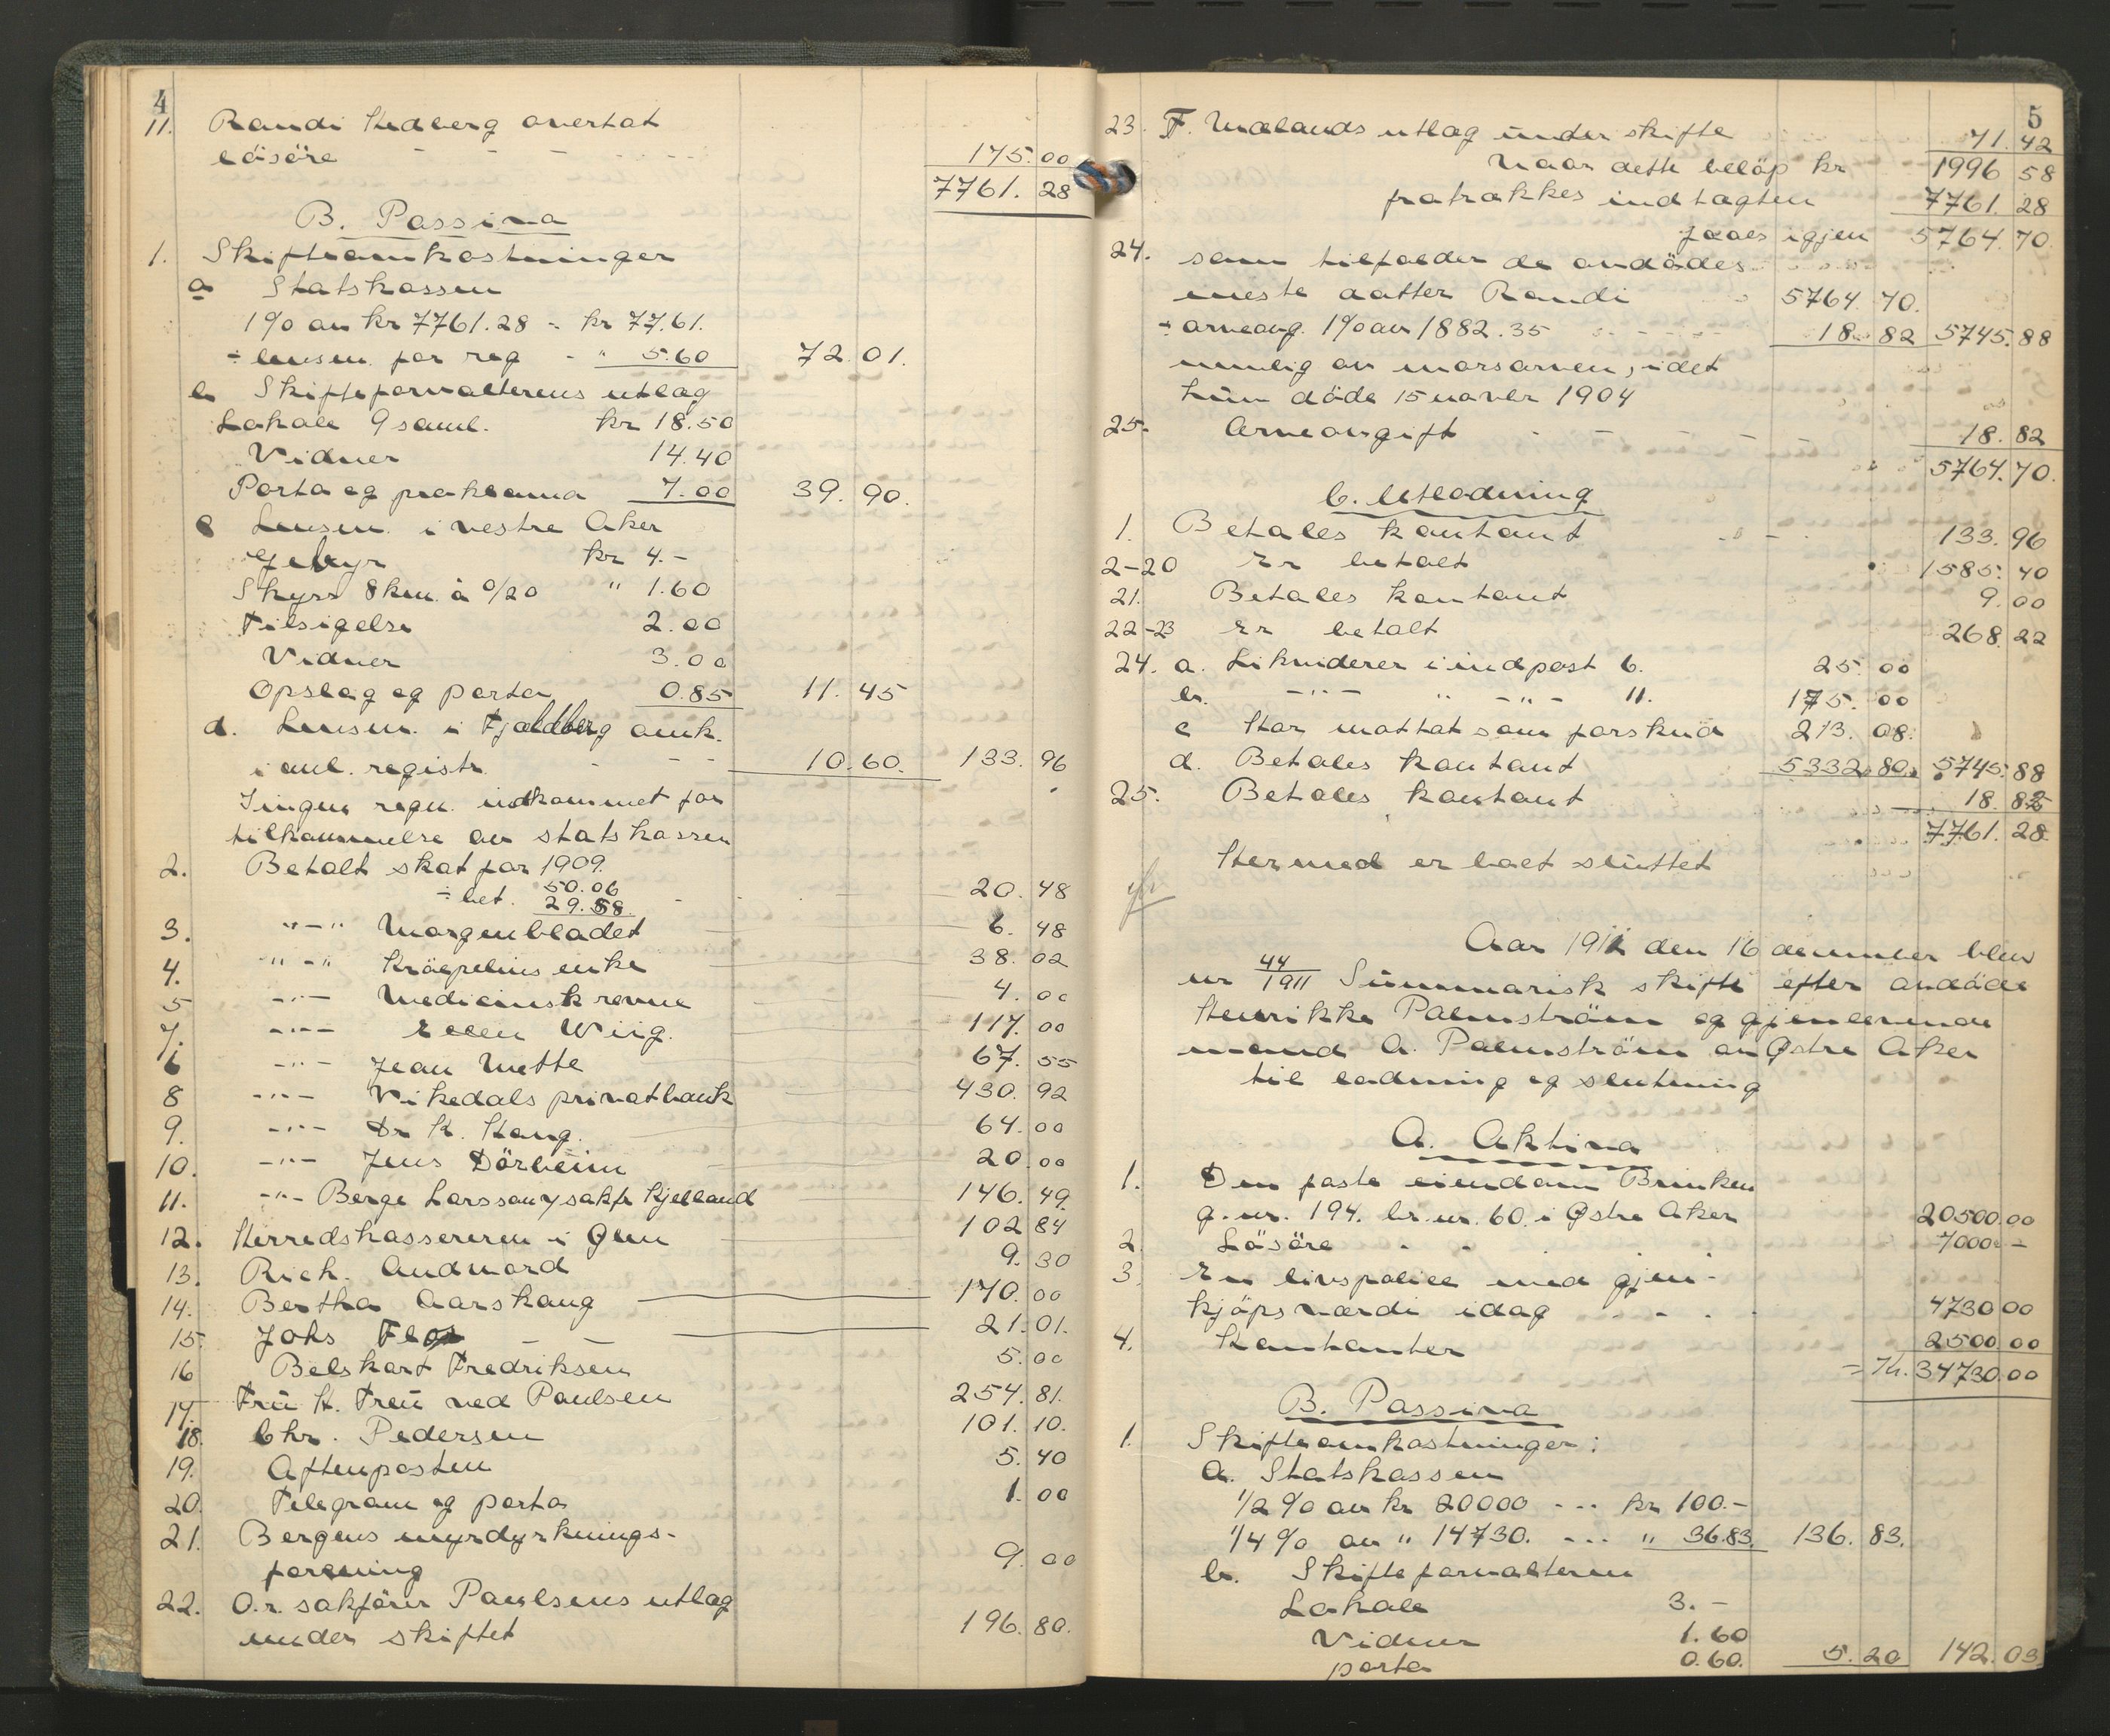 4
11. Randi Stedberg overtat
løsöre - - - 175.00
7761.28
B. Passiva
1. Skifteomkostninger
a Statskassen
1% av kr 7761.28 = kr 77.61.
÷ lensm. for reg - " 5.60 72.01.
b Skifteforvalterens utlag
Lokale 9 saml. kr 18.50
Vidner 14.40
Porto og proklama 7.00 39.90.
c Lensm. i vestre Aker
Gebyr kr 4.-
Skyss 8 km. à 0/20 " 1.60
Tilsigelse 2.00
Vidner 3.00
Opslag og porto 0.85 11.45
d. Lensm. i Fjeldberg omk.
i anl. registr. - - - 10.60. 133.96
Ingen regn. indkommet for
tilkommelse av statskassen
2. Betalt skat for 1909.
50.06
÷ bet. 29.58. - 20.48
3. "-" Morgenbladet 6.48
4. "-" Kräpelins enke 38.02
5 -"- Medicinsk revue 4.00
7. -"- Ellen Wiig. 117.00
6 -"- Jean Mette 67.55
8 -"- Vikedals privatbank 430.92
9. -"- Dr K. Stang. 64.00
10. -"- Jens Dörheim 20.00
11. -"- Berge Larsson v/ sakf. Kjelland 146.49.
12. Herredskassereren i Ølen 102.84
13. Rich. Andvord 9.30
14. Bertha Aarskaug 170.00
15. Johs Flor - - 21.01.
16 Belskart Fredriksen 5.00
17. Frü H. Freü ved Paulsen 254.81.
18. Chr. Pedersen 101.10.
19. Aftenposten 5.40
20. Telegram og porto 1.00
21. Bergens myrdyrknings-
forening 9.00
22. O.r. sakförer Paulsens utlag
under skiftet 196.80.
5
23. F. Mælands utlag ünder skifte 71.42
Naar dette belöp kr 1996 58
fratrækkes indtægten 7761.28
faaes igjen 5764.70.
24. som tilfalder de avdödes
eneste datter Randi 5764 70.
÷ arveavg. 1% av 1882.35 18.82 5745.88
nemlig av morsarven, idet
hün döde 15 novbr 1904
25. Arveavgift - - - 18.82
5764.70.
C. Utlodning
1. Betales kontant - - 133.96
2-20 Er betalt 1585.40
21. Betales kontant 9.00
22-23 Er betalt 268.22
24. a. Likviderer i indpost 6. 25.00
b. -"- " -"- 11. 175.00
c Har mottat som forskud 213.08.
d. Betales kontant 5332.80. 5745.88
25. Betales kontant 18.82
7761.28.
Hermed er boet slüttet
Aar 1911 den 16 december blev
nr 44/1911 Sümmarisk skifte efter avdöde
Henrikke Palmström og gjenlevende
mand A. Palmström av Østre Aker
til lodning og slutning
A. Aktiva
1. Den faste eiendom Brinken
g.nr. 194. br.nr. 60. i Østre Aker 20500.00
2. Lösöre - - 7000.-
3. En livspolice med gjen-
kjöpsværdi idag - - 4730 00
4. Kontanter 2500.00
= Kr. 34730.00
B. Passiva
1. Skifteomkostninger:
a. Statskassen
1/2 % av kr 20000 --- kr 100.-
1/4 % av " 14730. --- " 36.83. 136.83.
b. Skifteforvalteren
Lokale 3.-
Vidner 1.60
porto 0.60. 5.20 142.03